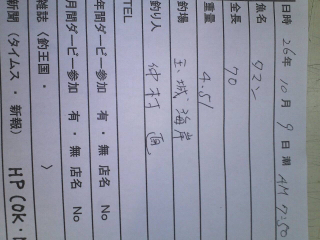 日時 26年 10月 9日 潮 AM 7:50
魚名 タマン
全長 70
重量 4.51
釣場 玉城海岸
釣り人 仲村
TEL
年間ダービー参加 有・無 店名 No
月間ダービー参加 有・無 店名 No
雑誌 (釣王国・ )
新聞 (タイムス・新報) HP(OK・